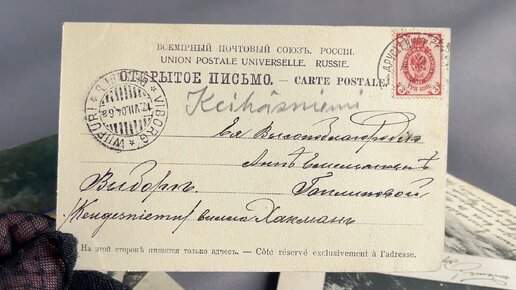 ВСЕМІРНЫЙ ПОЧТОВЫЙ СОЮЗЪ. РОССІЯ.
UNION POSTALE UNIVERSELLE. RUSSIE.
ОТКРЫТОЕ ПИСЬМО. — CARTE POSTALE
WIIPURI * VIBORG *
17.VII.04
Keihäsniemi
Ея Высокоблагородію
Аннѣ
Выборгъ.
вилла Хакманъ
На этой сторонѣ пишется только адресъ. — Côté réservé exclusivement à l'adresse.